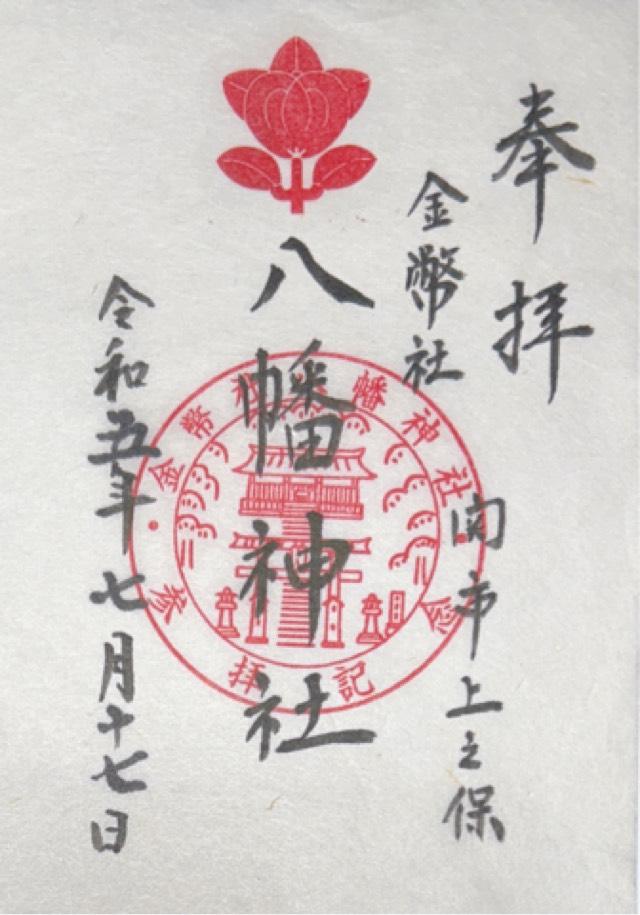 奉拝
金幣社
関市上之保
八幡神社
令和五年七月十七日
金幣社八幡神社
参拝記念